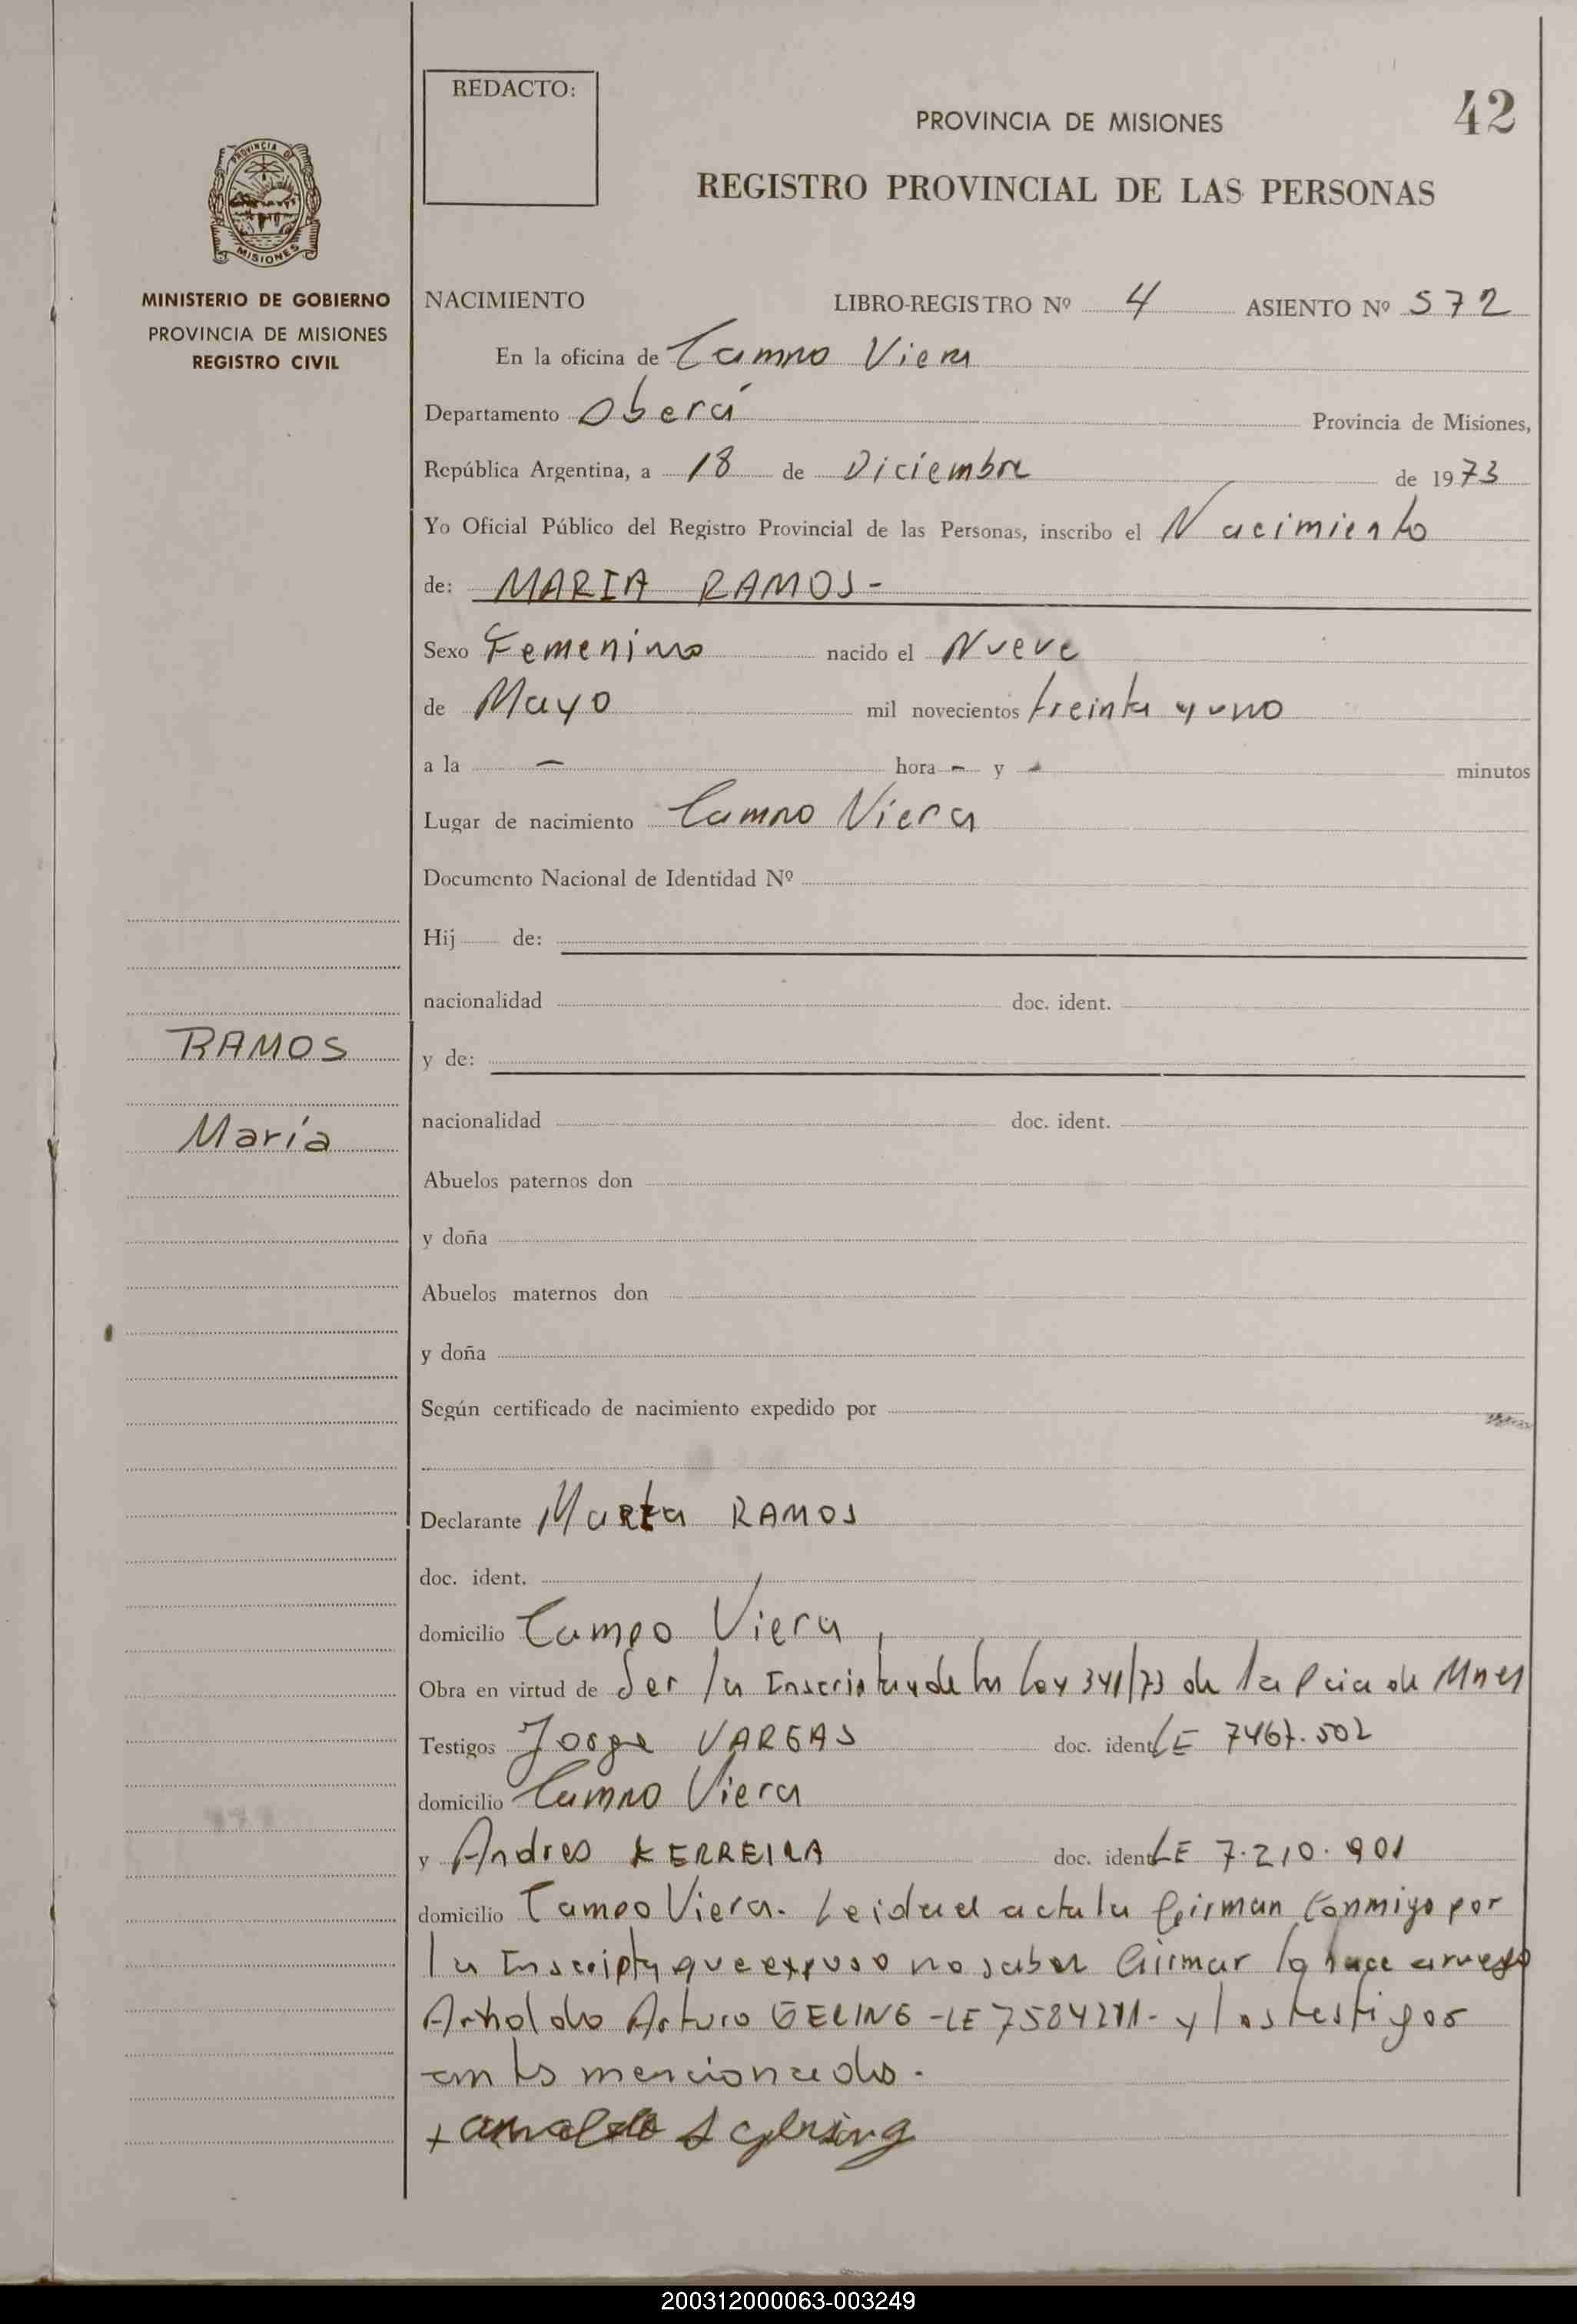 REDACTO:
PROVINCIA DE MISIONES
42
REGISTRO PROVINCIAL DE LAS PERSONAS
PROVINCIA DE
MISIONES
MINISTERIO DE GOBIERNO
PROVINCIA DE MISIONES
REGISTRO CIVIL
NACIMIENTO LIBRO-REGISTRO Nº 4 ASIENTO Nº 572
En la oficina de Campo Viera
Departamento Oberá Provincia de Misiones,
República Argentina, a 18 de Diciembre de 1973
Yo Oficial Público del Registro Provincial de las Personas, inscribo el Nacimiento
de: MARIA RAMOS-
Sexo Femenino nacido el Nueve
de Mayo mil novecientos treinta y uno
a la - hora - y - minutos
Lugar de nacimiento Campo Viera
Documento Nacional de Identidad Nº
Hij de:
nacionalidad doc. ident.
RAMOS
y de:
María
nacionalidad doc. ident.
Abuelos paternos don
y doña
Abuelos maternos don
y doña
Según certificado de nacimiento expedido por
Declarante RAMOS
doc. ident.
domicilio Campo Viera
Obra en virtud de Ser la Inscripta y de la Ley 341/73 de la Pcia de Mnes
Testigos Jorge VARGAS doc. ident LE 7467.502
domicilio Campo Viera
y Andres KERREIRA doc. ident LE 7.210.901
domicilio Campo Viera. Leida el acta la firman conmigo por
la Inscripta que expuso no saber firmar lo hace a ruego
Arturo GELING -LE 7584211- y los testigos
antes mencionados.